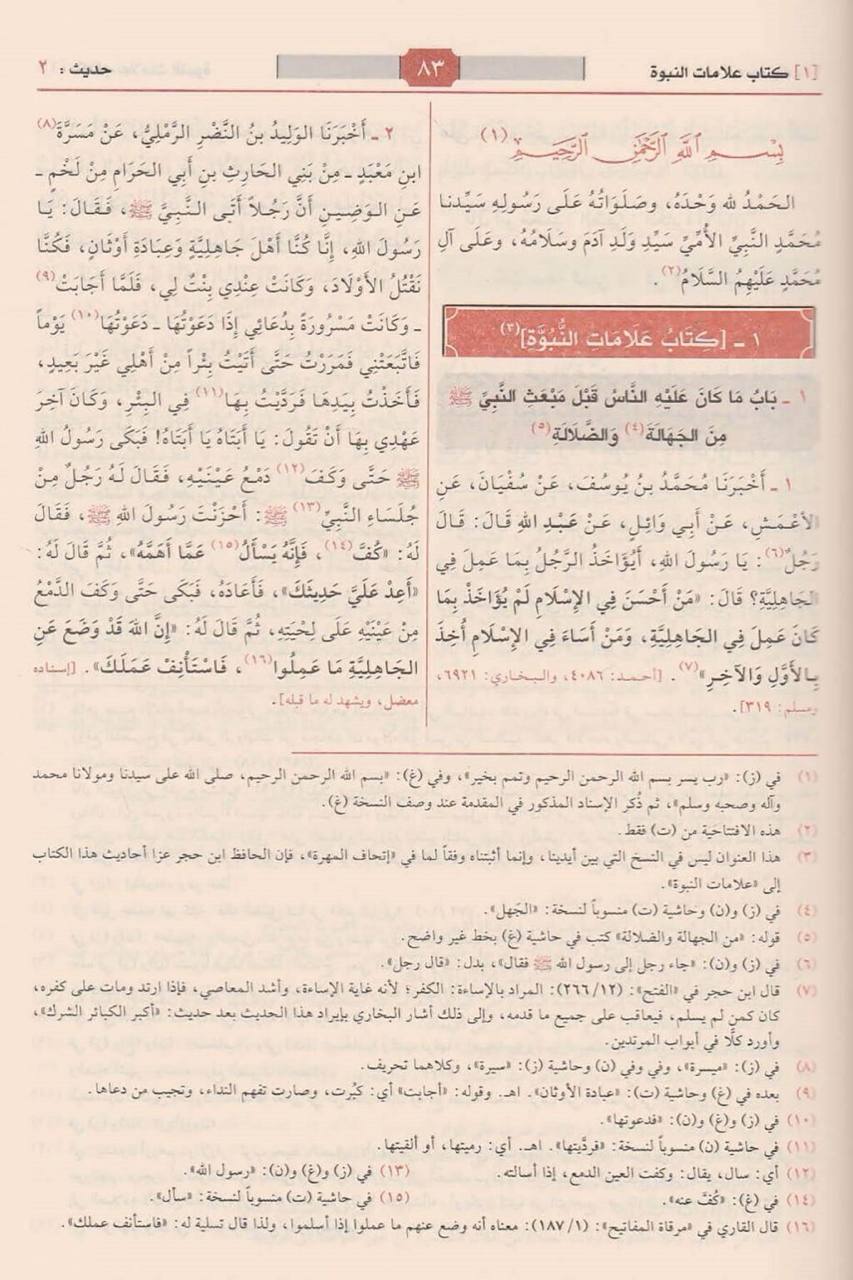 [١] كتاب علامات النبوة
٨٣
حديث : ٢
بِسْمِ اللَّهِ الرَّحْمَنِ الرَّحِيمِ (١)
الحَمْدُ لله وَحْدَهُ، وصَلَوَاتُهُ عَلَى رَسُولِهِ سَيِّدنا
مُحَمَّدٍ النَّبِيِّ الأُمِّيِّ سَيِّدِ وَلَدِ آدَمَ وَسَلَامُهُ، وعَلَى آلِ
مُحَمَّدٍ عَلَيْهِمُ السَّلَامُ(٢).
١ ـ [كِتَابُ عَلَامَاتِ النُّبُوَّةِ](٣)
١ ـ بَابُ مَا كَانَ عَلَيْهِ النَّاسُ قَبْلَ مَبْعَثِ النَّبِيِّ ﷺ
مِنَ الجَهَالَةِ(٤) وَالضَّلَالَةِ(٥)
١ ـ أَخْبَرَنَا مُحَمَّدُ بنُ يُوسُفَ، عَنْ سُفْيَانَ، عَنِ
الأَعْمَشِ، عَنْ أَبِي وَائِلٍ، عَنْ عَبْدِ اللهِ قَالَ: قَالَ
رَجُلٌ(٦): يَا رَسُولَ اللهِ، أَيُؤَاخَذُ الرَّجُلُ بِمَا عَمِلَ فِي
الجَاهِلِيَّةِ؟ قَالَ: «مَنْ أَحْسَنَ فِي الإِسْلَامِ لَمْ يُؤَاخَذْ بِمَا
كَانَ عَمِلَ فِي الجَاهِلِيَّةِ، وَمَنْ أَسَاءَ فِي الإِسْلَامِ أُخِذَ
بِالأَوَّلِ وَالآخِرِ»(٧). [أحمد: ٤٠٨٦، والبخاري: ٦٩٢١،
ومسلم: ٣١٩].
٢ ـ أَخْبَرَنَا الوَلِيدُ بنُ النَّضْرِ الرَّمْلِيُّ، عَنْ مَسَرَّةَ(٨)
ابنِ مَعْبَدٍ ـ مِنْ بَنِي الحَارِثِ بنِ أَبِي الحَرَامِ مِنْ لَخْمٍ ـ
عَنِ الوَضِينِ أَنَّ رَجُلاً أَتَى النَّبِيَّ ﷺ، فَقَالَ: يَا
رَسُولَ اللهِ، إِنَّا كُنَّا أَهْلَ جَاهِلِيَّةٍ وَعِبَادَةِ أَوْثَانٍ، فَكُنَّا
نَقْتُلُ الأَوْلَادَ، وَكَانَتْ عِنْدِي بِنْتٌ لِي، فَلَمَّا أَجَابَتْ(٩)
ـ وَكَانَتْ مَسْرُورَةً بِدُعَائِي إِذَا دَعَوْتُهَا ـ دَعَوْتُهَا(١٠) يَوْماً
فَاتَّبَعَتْنِي فَمَرَرْتُ حَتَّى أَتَيْتُ بِئْراً مِنْ أَهْلِي غَيْرَ بَعِيدٍ،
فَأَخَذْتُ بِيَدِهَا فَرَدَّيْتُ بِهَا(١١) فِي البِئْرِ، وَكَانَ آخِرَ
عَهْدِي بِهَا أَنْ تَقُولَ: يَا أَبَتَاهُ يَا أَبَتَاهُ! فَبَكَى رَسُولُ اللهِ
ﷺ حَتَّى وَكَفَ(١٢) دَمْعُ عَيْنَيْهِ، فَقَالَ لَهُ رَجُلٌ مِنْ
جُلَسَاءِ النَّبِيِّ(١٣) ﷺ: أَحْزَنْتَ رَسُولَ اللهِ ﷺ، فَقَالَ
لَهُ: «كُفَّ(١٤)، فَإِنَّهُ يَسْأَلُ(١٥) عَمَّا أَهَمَّهُ»، ثُمَّ قَالَ لَهُ:
«أَعِدْ عَلَيَّ حَدِيثَكَ»، فَأَعَادَهُ، فَبَكَى حَتَّى وَكَفَ الدَّمْعُ
مِنْ عَيْنَيْهِ عَلَى لِحْيَتِهِ، ثُمَّ قَالَ لَهُ: «إِنَّ اللهَ قَدْ وَضَعَ عَنِ
الجَاهِلِيَّةِ مَا عَمِلُوا(١٦)، فَاسْتَأْنِفْ عَمَلَكَ». [إسناده
معضل، ويشهد له ما قبله].
(١) في (ز): «رب يسر بسم الله الرحمن الرحيم وتمم بخير»، وفي (غ): «بسم الله الرحمن الرحيم، صلى الله على سيدنا ومولانا محمد
وآله وصحبه وسلم»، ثم ذُكر الإسناد المذكور في المقدمة عند وصف النسخة (غ).
(٢) هذه الافتتاحية من (ت) فقط.
(٣) هذا العنوان ليس في النسخ التي بين أيدينا، وإنما أثبتناه وفقاً لما في «إتحاف المهرة»، فإن الحافظ ابن حجر عزا أحاديث هذا الكتاب
إلى «علامات النبوة».
(٤) في (ز) و(ن) وحاشية (ت) منسوباً لنسخة: «الجَهل».
(٥) قوله: «من الجهالة والضلالة» كتب في حاشية (غ) بخط غير واضح.
(٦) في (ز) و(ن): «جاء رجل إلى رسول الله ﷺ فقال»، بدل: «قال رجل».
(٧) قال ابن حجر في «الفتح»: (١٢/٢٦٦): المراد بالإساءة: الكفر؛ لأنه غاية الإساءة، وأشد المعاصي، فإذا ارتد ومات على كفره،
كان كمن لم يسلم، فيعاقب على جميع ما قدمه، وإلى ذلك أشار البخاري بإيراد هذا الحديث بعد حديث: «أكبر الكبائر الشرك»،
وأورد كلًّا في أبواب المرتدين.
(٨) في (ز): «ميسرة»، وفي وفي (ن) وحاشية (ز): «سيرة»، وكلاهما تحريف.
(٩) بعده في (غ) وحاشية (ت): «عبادة الأوثان». اهـ. وقوله: «أجابت» أي: كبُرت، وصارت تفهم النداء، وتجيب من دعاها.
(١٠) في (ز) و(غ) و(ن): «فدعوتها».
(١١) في حاشية (ن) منسوباً لنسخة: «فردَّيتها». اهـ. أي: رميتها، أو ألقيتها.
(١٢) أي: سال، يقال: وكفت العين الدمع، إذا أسالته. (١٣) في (ز) و(غ) و(ن): «رسول الله».
(١٤) في (غ): «كُفَّ عنه». (١٥) في حاشية (ت) منسوباً لنسخة: «سأل».
(١٦) قال القاري في «مرقاة المفاتيح»: (١/١٨٧): معناه أنه وضع عنهم ما عملوا إذا أسلموا، ولذا قال تسلية له: «فاستأنف عملك».